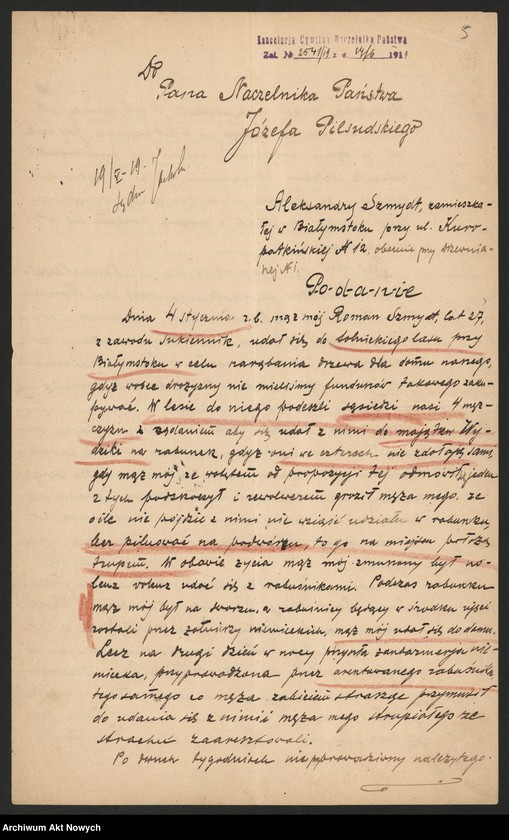 5
Kancelarja Cywilna Naczelnika Państwa
Zał. № 2541/19 z d. 24/6 1919
Do
Pana Naczelnika Państwa
Józefa Pilsudskiego
19/ -19.
Aleksandry Szmydt, zamieszka-
łej w Białymstoku przy ul. Kuro-
patkińskiej № 12, obecnie przy Drewnia-
nej № 1.
P-o-d-a-n-i-e
Dnia 4 stycznia r.b. mąż mój Roman Szmydt, lat 27,
z zawodu sukiennik, udał się do Solnickiego lasu przy
Białymstoku w celu narąbania drzewa dla domu naszego,
gdyż wobec drożyzny nie mieliśmy funduszu takowego zaku-
pywać. W lesie do niego podeszli sąsiedzi nasi 4 męż-
czyzn z żądaniem aby się udał z nimi do majątku
na rabunek, gdyż oni we czterech nie zdołają sami,
gdy mąż mój ze wstrętem od propozycji tej odmówił, jeden
z tych podskoczył i rewolwerem groził męża mego, że
o ile nie pójdzie z nimi nie wziąść udziału w rabunku,
lecz pilnować na podwórzu, to go na miejscu położą
trupem. W obawie życia mąż mój zmuszony był no-
lens volens udać się z rabuśnikami. Podczas rabunku
mąż mój był na dworzu, a rabuśnicy będący w środku ujęci
zostali przez żołnierzy niemieckich, mąż mój udał się do domu.
Lecz na drugi dzień w nocy przyszła żandarmerja nie-
miecka, przyprowadzona przez aresztowanego rabuśnika,
tego samego co męża zabiciem strasząc przymusił
do udania się z nimi i męża mego struplałego ze
strachu zaaresztowali.
Po dwuch tygodniach nieprzeprowadziwszy należytego
Archiwum Akt Nowych